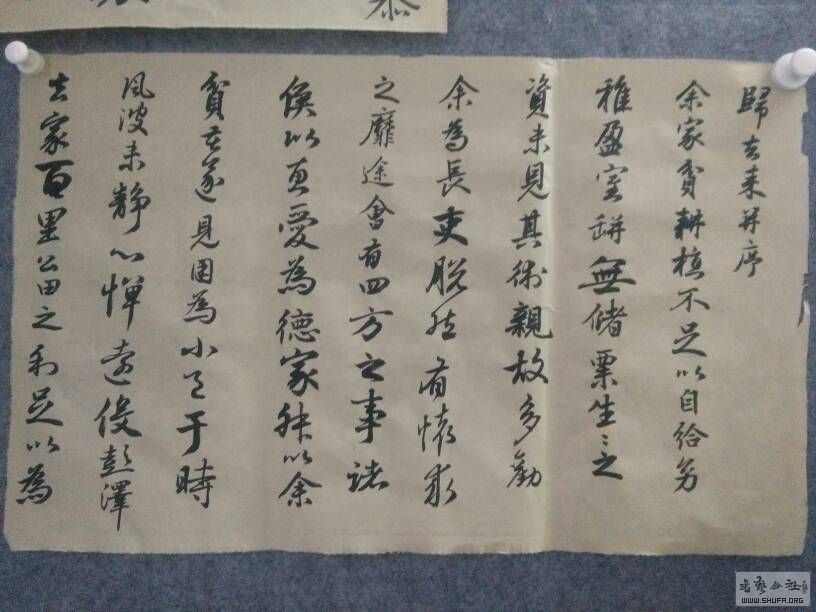 歸去来并序
余家貧耕植不足以自給幼
稚盈室缾無儲粟生〻之
資未見其術親故多勸
余為長吏脱然有懷求
之靡途會有四方之事諸
侯以惠愛為德家叔以余
貧苦遂見用為小邑于時
風波未静心憚遠役彭澤
去家百里公田之利足以為
書藝公社
WWW.SHUFA.ORG